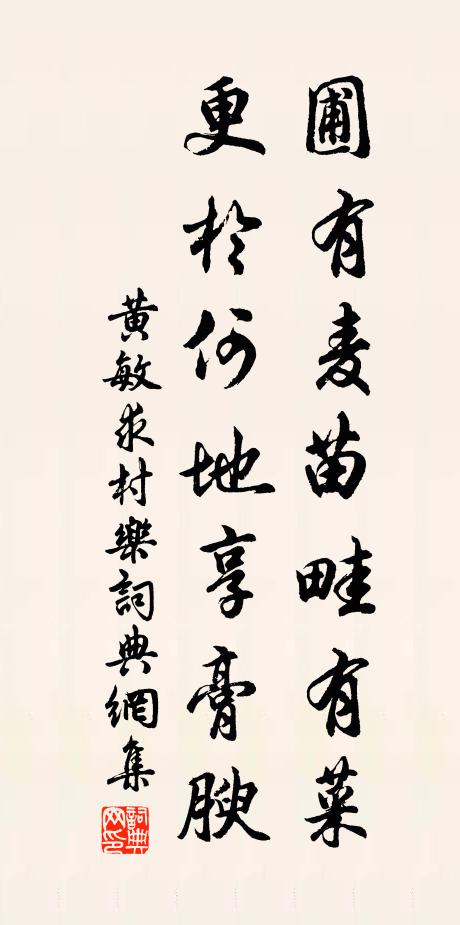 圃有麦苗畦有菜
更於何地享膏腴
黄敏求村樂詞典網集
詞典网印